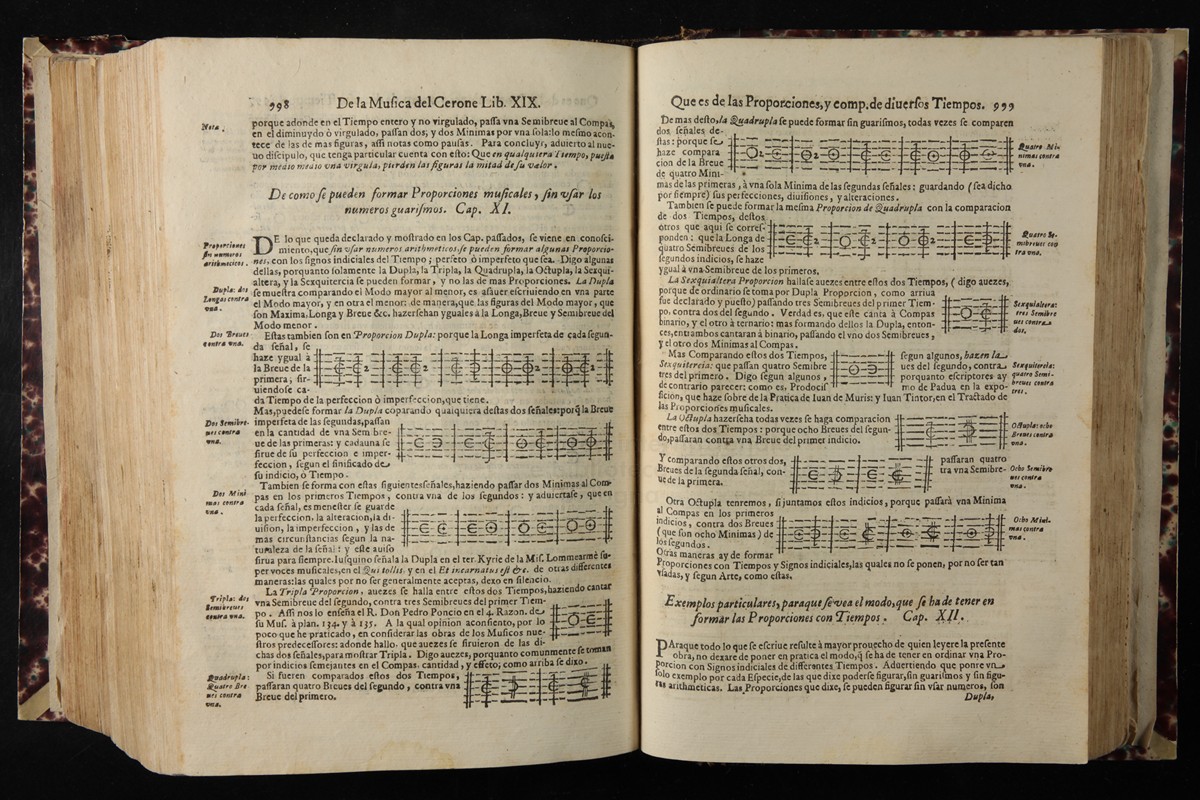 998 De la Musica del Cerone Lib. XIX.
Nota.
porque adonde en el Tiempo entero y no virgulado, passa vna Semibreue al Compas,
en el diminuydo ò virgulado, passan dos; y dos Minimas por vna sola: lo mesmo acon-
tece de las de mas figuras, assi notas como pausas. Para concluyr, aduierto al nue-
uo discipulo, que tenga particular cuenta con esto: Que en qualquiera Tiempo, puesta
por medio medio vna virgula, pierden las figuras la mitad de su valor.
De como se pueden formar Proporciones musicales, sin vsar los
numeros guarismos. Cap. XI.
Proporciones
sin numeros
arithmeticos.
DE lo que queda declarado y mostrado en los Cap. passados, se viene en conosci-
miento, que sin vsar numeros arithmeticos, se pueden formar algunas Proporcio-
nes, con los signos indiciales del Tiempo; perfeto ò imperfeto que sea. Digo algunas
dellas, porquanto solamente la Dupla, la Tripla, la Quadrupla, la Octupla, la Sexqui-
altera, y la Sexquitercia se pueden formar, y no las de mas Proporciones. La Dupla
Dupla: dos
Longas contra
vna.
se muestra comparando el Modo mayor al menor, es assauer escriuiendo en vna parte
el Modo mayor, y en otra el menor: de manera, que las figuras del Modo mayor, que
son Maxima, Longa y Breue &c. hazersehan yguales à la Longa, Breue y Semibreue del
Modo menor.
Dos Breues
contra vna.
Estas tambien son en Proporcion Dupla: porque la Longa imperfeta de cada segun-
da señal, se
haze ygual à
la Breue de la
primera; sir-
uiendose ca-
da Tiempo de la perfeccion ò imperfeccion, que tiene.
Mas, puedese formar la Dupla coparando qualquiera destas dos señales: porq̃ la Breue
Dos Semibre-
ues contra
vna.
imperfeta de las segundas, passan
en la cantidad de vna Sem breue
ue de las primeras: y cadauna se
sirue de su perfeccion e imper-
feccion, segun el sinificado de
su indicio, ò Tiempo.
Tambien se forma con estas siguientes señales, haziendo passar dos Minimas al Com-
Dos Mini-
mas contra
vna.
pas en los primeros Tiempos, contra vna de los segundos: y aduiertase, que en
cada señal, es menester se guarde
la perfeccion, la alteracion, la di-
uision, la imperfeccion, y las de
mas circunstancias segun la na-
turaleza de la señal: y este auiso
sirua para siempre. Iusquino señala la Dupla en el ter. Kyrie de la Mis. Lommearmè su-
per voces musicales, en el Qui tollis. y en el Et incarnatus est &c. de otras differentes
maneras: las quales por no ser generalmente aceptas, dexo en silencio.
Tripla: dos
Semibreues
contra vna.
La Tripla Proporcion, auezes se halla entre estos dos Tiempos, haziendo cantar
vna Semibreue del segundo, contra tres Semibreues del primer Tiem-
po. Assi nos lo enseña el R. Don Pedro Poncio en el 4. Razon. de
su Mus. à plan. 134. y à 135. A la qual opinion aconsiento, por lo
poco que he praticado, en considerar las obras de los Musicos nue-
stros predecessores: adonde hallo. que auezes se siruieron de las di-
chas dos señales, para mostrar Tripla. Digo auezes, porquanto comunmente se toman
por indicios semejantes en el Compas. cantidad, y effeto; como arriba se dixo.
Quadrupla:
Quatro Bre
ues contra
vna.
Si fueren comparados estos dos Tiempos,
passaran quatro Breues del segundo, contra vna
Breue del primero.
Que es de las Proporciones, y comp. de diuersos Tiempos. 999
De mas desto, la Quadrupla se puede formar sin guarismos, todas vezes se comparen
dos señales de-
stas: porque se
haze compara
cion de la Breue
de quatro Mini-
Quatro Mi-
nimas contra
vna.
mas de las primeras, à vna sola Minima de las segundas señales: guardando (sea dicho
por siempre) sus perfecciones, diuisiones, y alteraciones.
Tambien se puede formar la mesma Proporcion de Quadrupla con la comparacion
de dos Tiempos, destos
otros que aqui se corres-
ponden: que la Longa de
quatro Semibreues de los
segundos indicios, se haze
ygual à vna Semibreue de los primeros.
Quatro Se-
mibreues con
tra vna.
La Sexquialtera Proporcion hallase auezes entre estos dos Tiempos, (digo auezes,
porque de ordinario se toma por Dupla Proporcion, como arriua
fue declarado y puesto) passando tres Semibreues del primer Tiem-
po. contra dos del segundo. Verdad es, que este canta à Compas
binario, y el otro à ternario: mas formando dellos la Dupla, enton-
ces, entrambos cantaran à binario, passando el vno dos Semibreues,
y el otro dos Minimas al Compas.
Sexquialtera:
tres Semibre
ues contra
dos.
Mas Comparando estos dos Tiempos, segun algunos, hazen la
Sexquitercia: que passan quatro Semibre ues del segundo, contra
tres del primero. Digo segun algunos, porquanto escriptores ay
de contrario parecer: como es, Prodocis mo de Padua en la expo-
sicion, que haze sobre de la Pratica de Iuan de Muris: y Iuan Tintor, en el Tractado de
las Proporciones musicales.
Sexquitercia:
quatro Semi-
breues contra
tres.
La Octupla hazerseha todas vezes se haga comparacion
entre estos dos Tiempos: porque ocho Breues del segun-
do, passaran contra vna Breue del primer indicio.
Octupla: ocho
Breues contra
vna.
Y comparando estos otros dos, passaran quatro
Breues de la segunda señal, con- tra vna Semibre-
ue de la primera.
Ocho Semibre
ues contra
vna.
Otra Octupla tenremos, si juntamos estos indicios, porque passarà vna Minima
al Compas en los primeros
indicios, contra dos Breues
(que son ocho Minimas) de
los segundos.
Otras maneras ay de formar
Proporciones con Tiempos y Signos indiciales, las quales no se ponen, por no ser tan
vsadas, y segun Arte, como estas.
Ocho Mini-
mas contra
vna.
Exemplos particulares, paraque se vea el modo, que se ha de tener en
formar las Proporciones con Tiempos. Cap. XII.
PAraque todo lo que se escriue resulte à mayor prouecho de quien leyere la presente
obra, no dexare de poner en pratica el modo, q̃ se ha de tener en ordinar vna Pro-
porcion con Signos indiciales de differentes Tiempos. Aduertiendo que ponre vn
solo exemplo por cada Especie, de las que dixe poderse figurar, sin guarismos y sin figu-
ras arithmeticas. Las Proporciones que dixe, se pueden figurar sin vsar numeros, son
Dupla,